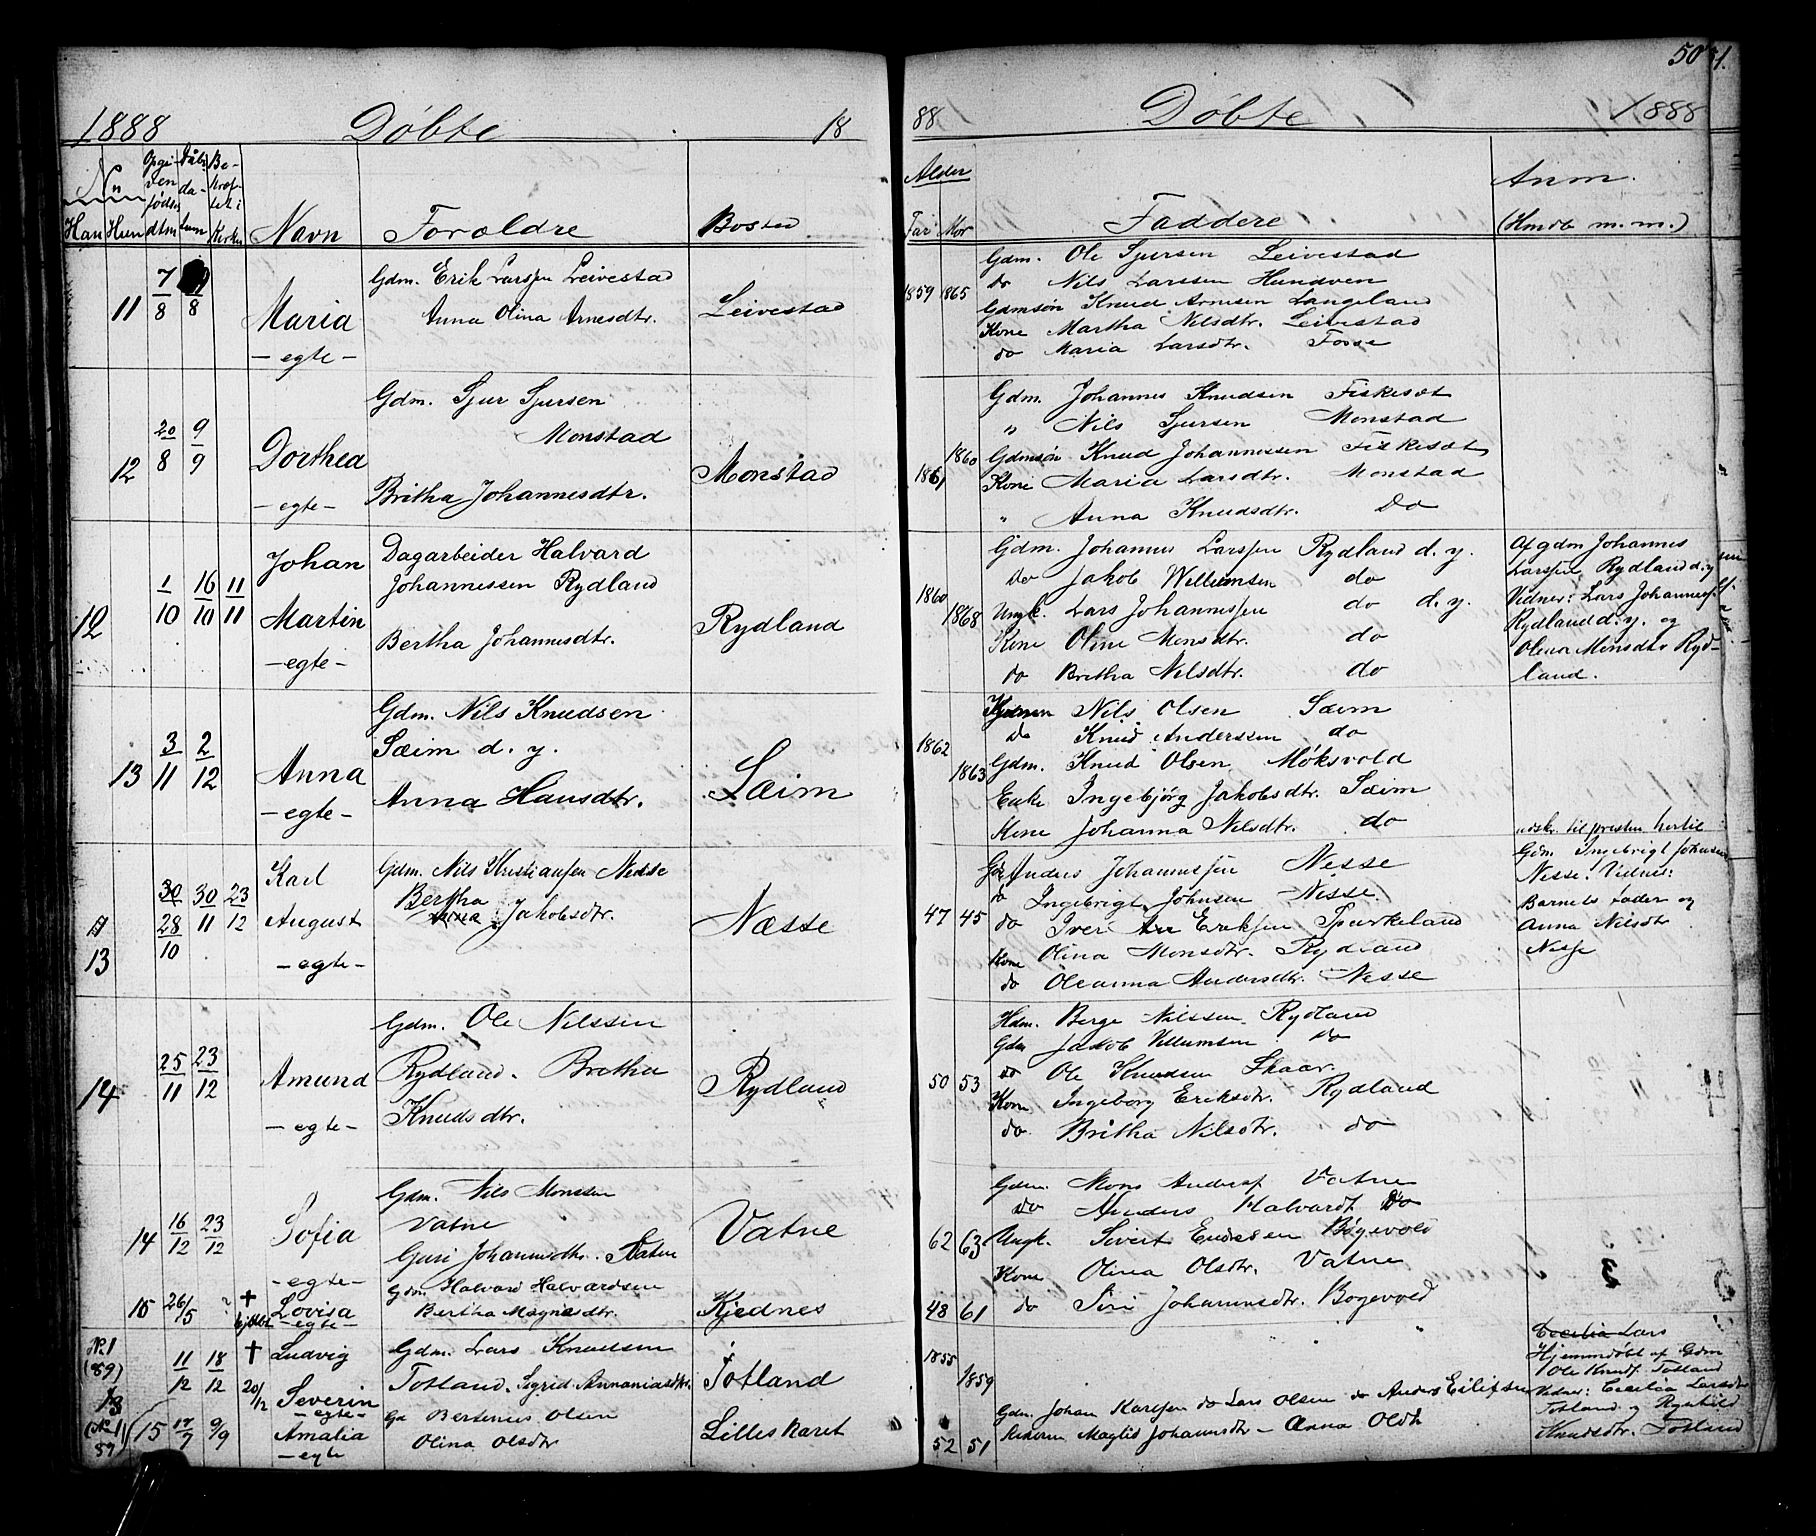 50
1888 Døbte 18
88 Døbte 1888
Nr.
Han Hun
Opgi-
ven
føds.
dtm
Dåbs
da-
tum
Be-
kræf-
tet i
Kirken
Navn
Forældre
Bosted
Alder
Far Mor
Faddere
Anm.
(Hmdb m. m.)
11
7/8
/8
Maria
- egte -
Gdm. Erik Larssen Leivestad
Anna Olina Arnesdtr.
Leivestad
1859 1865
Gdm. Ole Sjursen Leivestad
do Nils Larssen Hundven
Gdmsøn Knud Arnesen Langeland
Kone Martha Nilsdtr. Leivestad
do Maria Larsdtr. Fosse
12
20/8
9/9
Dorthea
- egte -
Gdm. Sjur Sjursen
Monstad
Britha Johannesdtr.
Monstad
1861 1860
Gdm. Johannes Knudsen Fiskesæt
" Nils Sjursen Monstad
Gdmsøn Knud Johannessen Fiskesæt
Kone Maria Larsdtr. Monstad
" Anna Knudsdtr. Do
12
1/10
16/10
11/11
Johan
Martin
- egte -
Dagarbeider Halvard
Johannessen Rydland
Bertha Johannesdtr.
Rydland
1860 1868
Gdm. Johannes Larssen Rydland d. y.
Do Jakob Willumsen do
Ungk. Lars Johannessen do d. y.
Kone Oline Monsdtr. do
do Britha Nilsdtr. do
Af gdm Johannes
Larssen Rydland d. y
Vidner: Lars Johanness.
Rydland d. y. og
Olena Monsdtr Ryd-
land.
13
3/11
2/12
Anna
- egte -
Gdm. Nils Knudsen
Sæim d. y.
Anna Hansdtr.
Sæim
1862 1863
Nils Olsen Sæim
Do Knud Anderssen do
Gdm. Knud Olsen Moksvold
Enke Ingebjørg Jakobsdtr. Sæim
Kone Johanna Nilsdtr. do
13
30
28/10
30/11
23/12
Karl
August
- egte -
Gdm. Nils Kristiansen Nesse
Bertha Jakobsdtr.
Næsse
47 45
Anders Johannessen Nesse
do Ingebrigt Johnsen Nesse
do Iver Eriksen Spurkeland
Kone Olina Monsdtr. Rydland
do Oleanna Andersdtr. Nesse
udskr. til presten hertil
Gdm. Ingebrigt Johnsen
Nesse. Vidner:
Barnets fader og
Anna Nilsdtr
Nesse
14
25/11
23/12
Amund
- egte -
Gdm. Ole Nilssen
Rydland. Bretha
Knudsdtr.
Rydland
50 53
Hdm. Berge Nilssen Rydland
Gdm Jakob Villumsen do
do Ole Knudsen Skaar
Kone Ingeborg Eriksdtr. Rydland
do. Britha Nilsdtr. do
14
16/12
23/12
Sofia
- egte -
Gdm. Nils Monssen
Vatne
Guri Johannesdtr.
Vatne
62 63
Gdm. Mons Anders Vatne
do Anders Halvards Do
Ungk. Sivert Endresen Bøgevold
Kone Olina Olsdtr. Vatne
do Siri Johannesdtr. Bøgevold
15
26/5
?
†
Lovisa
- egte -
Gdm. Halvard Halvardsen
Bertha Magnesdtr.
Kjednes
48 61
Nr. 1
(89)
13
11/12
18/12
20/12
†
Ludvig
Severin
- egte -
Gdm. Lars Knudsen
Totland. Sigrid Annaniasdtr.
Totland
1855 1859
Cecilia Lars
Hjemmdøbt af Gdm
Ole Knuds. Totland
Vidner: Cecilia Larsdtr
Totland og
Knudsdtr. Totland
(Nr. 1)
15
17/7
9/9
Amalia
- egte
Bertenius Olsen
Olina Olsdtr
Lilleskaret
52 51
Gdm. Johan Karlsen do Lars Olsen do Anders Eilifsen
Maglid Johannsdtr - Anna Oldtr